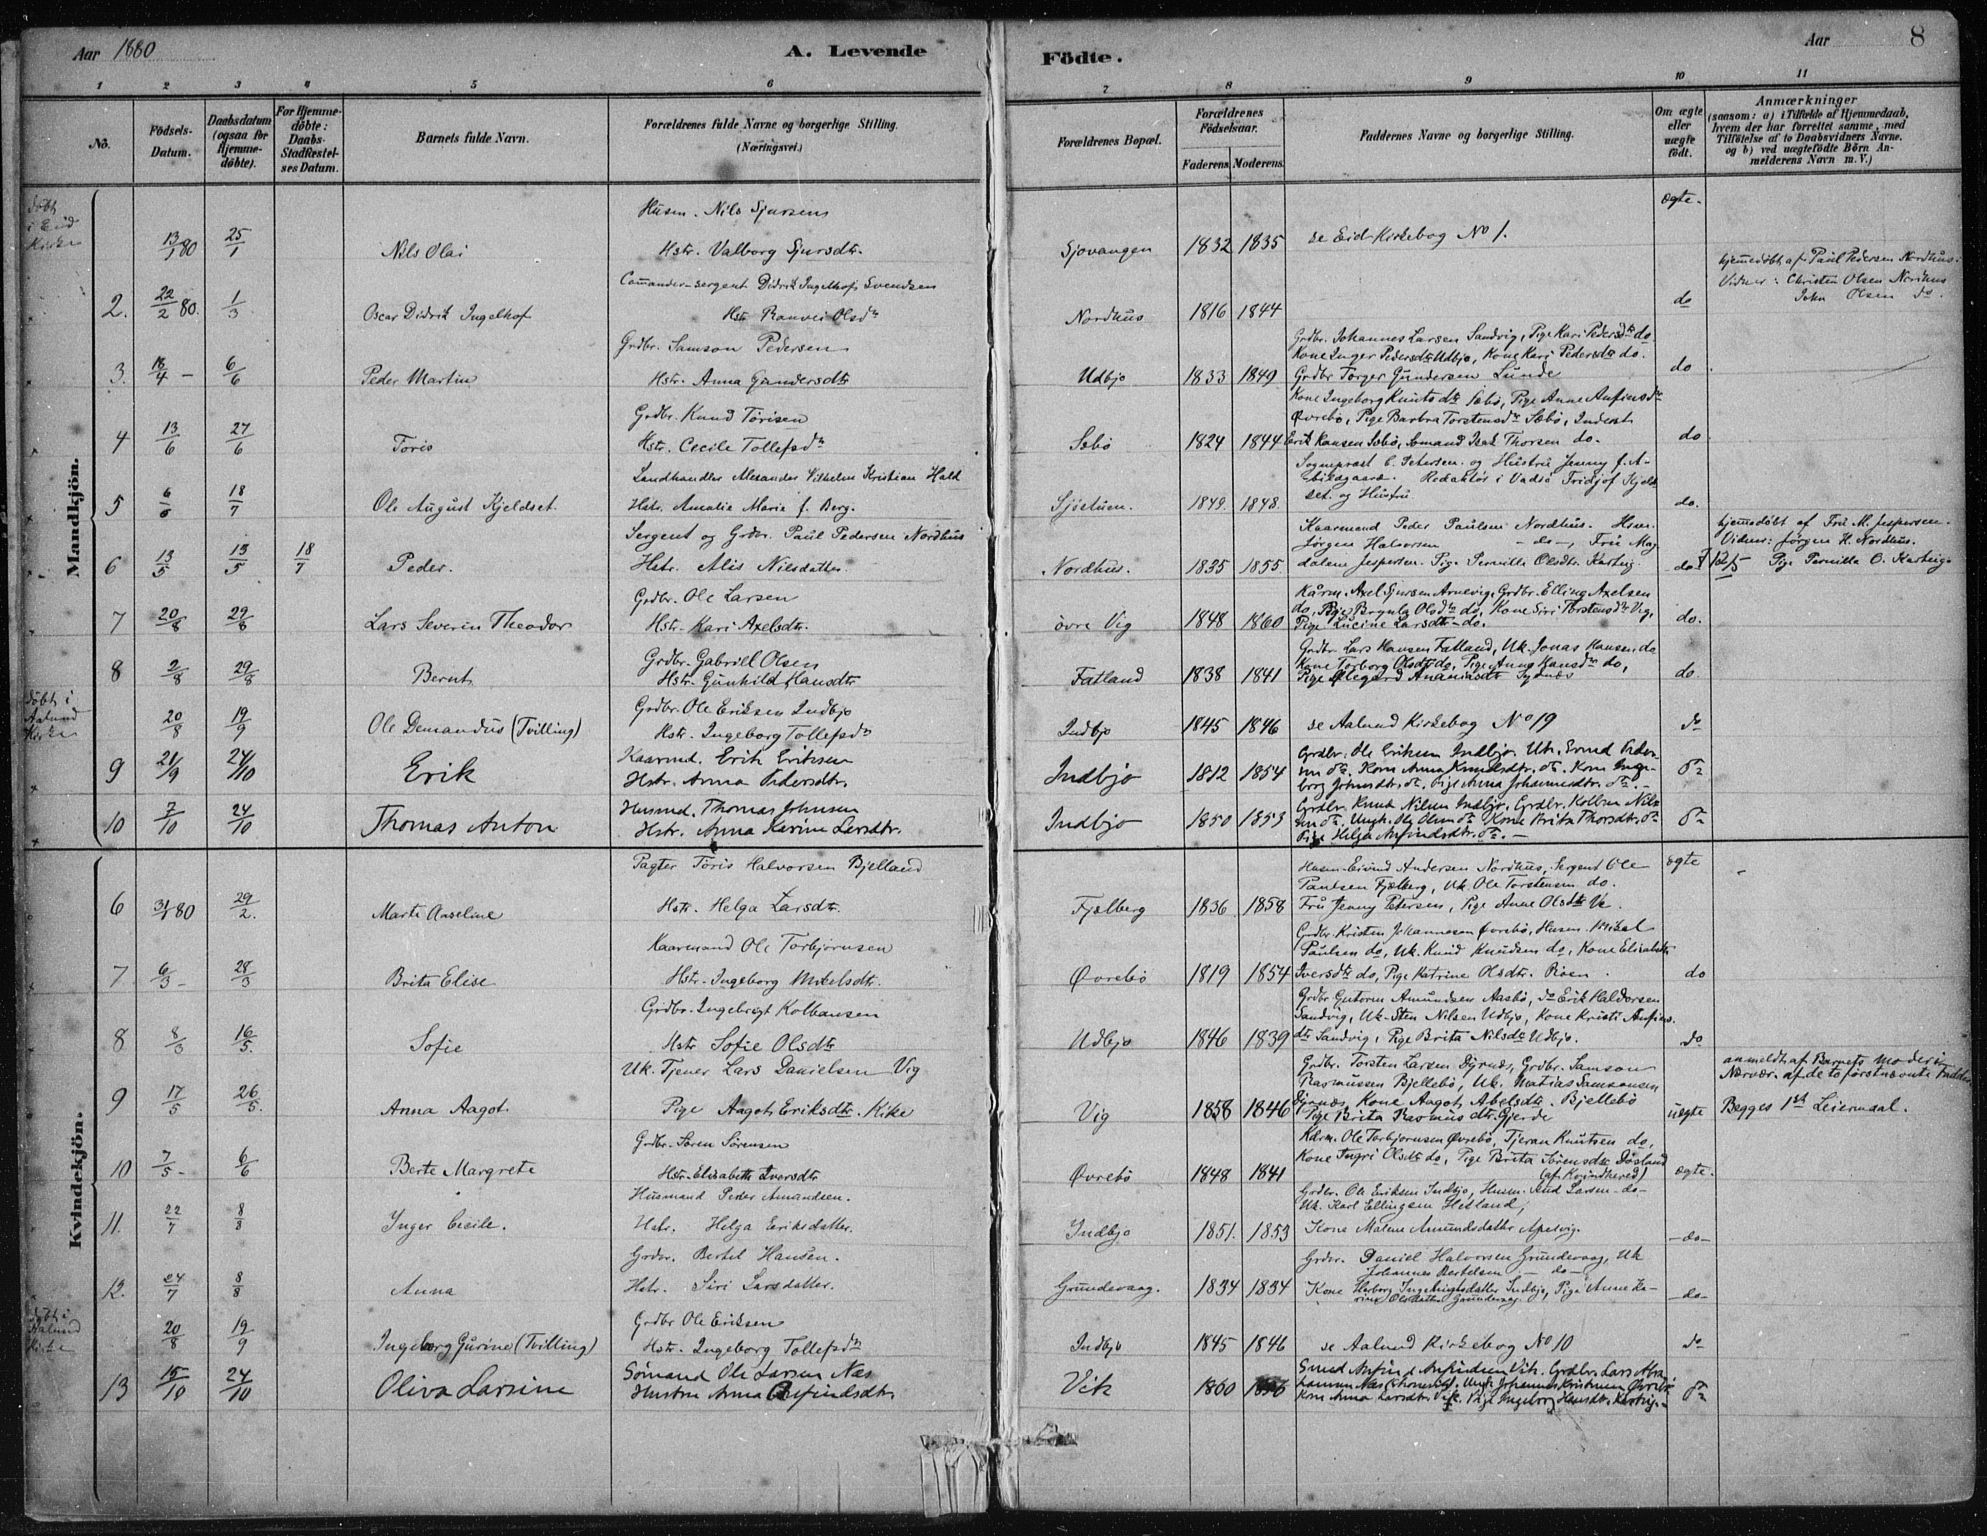 Aar 1880
A. Levende
Födte.
Aar
8
1 2 3 4 5 6 7 8 9 10 11
No.
Födsels-Datum.
Daabsdatum (ogsaa for Hjemme-döbte).
For Hjemme-döbte: Daabs-Stadfæstel-ses Datum.
Barnets fulde Navn.
Forældrenes fulde Navne og borgerlige Stilling. (Næringsvei.)
Forældrenes Bopæl.
Forældrenes Födselsaar.
Faderens. Moderens.
Faddernes Navne og borgerlige Stilling.
Om ægte eller uægte födt.
Anmærkninger
(saasom: a) i Tilfælde af Hjemmedaab,
hvem der har forrettet samme, med
Tilföielse af to Daabsvidners Navne.
og b) ved uægtefödte Börn An-
melderens Navn m. V.)
Mandkjön.
döbt
i Eid
Kirke
Husm. Nils Sjursens
13/1 80 25/1 Nils Olai Hstr. Valborg Sjursdtr. Sjovangen 1832 1835 se Eid-Kirkebog No 1. ægte.
Commander-sergent Didrik Ingelhof Svendsen
2. 22/2 80. 1/3 Oscar Didrik Ingelhof Hstr Ranvei Olsdtr Nordhus 1816 1844 do
hjemedöbt af Paul Pedersen Nordhus.
Vidner: Christen Olsen Nordhus
John Olsen do.
Grdbr. Samson Pedersen
3. 13/4 - 6/6 Peder Martin Hstr. Anna Gundersdtr Udbjo 1833 1849 do
Grdbr. Johannes Larsen Sandvig, Pige Kari Pedersdtr do
Kone Inger Pedersdtr Udbjo, Kone Kari Pedersdtr do.
Grdbr Torger Gundersen Lunde
Grdbr. Knud Törisen
4 13/6 27/6 Töris Hstr. Cecile Tollefsdtr Sæbö 1824 1844 do
Kone Ingeborg Knutsdtr Sæbö, Pige Anne Anfinsdtr
Övrebö, Pige Barbra Torstensdtr Sæbö, Inderst
Erik Hansen Sæbö, Sømand Isak Thorsen do.
Landhandler Alexander Vilhelm Kristian Hald
5 6/6 18/7 Ole August Kjeldset. Hstr. Amalie Marie f. Berg. Sjöstuen. 1849. 1848. do.
Sognepræst C. Petersen og Hustru Jenny f. A-
bildgaard. Redaktör i Vadsö Fridjof Kjeld-
set. og Hustru
Sergent og Grdbr. Paul Pedersen Nordhus
6 13/5 13/5 18/7 Peder. Hstr. Alis Nilsdatter. Nordhus. 1835 1855. do
Kaarmand Peder Paulsen Nordhus. Hsm.
Jörgen Halvorsen - do -, Fru Mag
dalene Jespersen. Pige Pernille Olsdtr. Kartvig.
hjemedöbt af Fru M. Jespersen.
Vidner: Jörgen H. Nordhus.
Pige Pernille O. Kartvig.
Grdbr. Ole Larsen
7 20/8 29/8 Lars Severin Theodor Hstr. Kari Axelsdtr. övre Vig 1848 1860 do.
Kårm. Axel Sjursen Arnevig, Grdbr. Elling Axelsen
do, Pige Brynla Olsdtr do, Kone Siri Torstensdtr Vig,
Pige Lucine Larsdtr - do.
Grdbr. Gabriel Olsen
8 2/8 29/8 Bernt Hstr. Gunhild Hansdtr Fatland 1838 1841 do.
Grdbr Lars Hansen Fatland, Uk. Jonas Hansen do
Kone Torborg Olsdtr do, Pige Anna Hansdtr do,
Pige Olegard Ananiasdtr Sydnæs
döbt i
Aalund
Kirke
Grdbr. Ole Eriksen Indbjo
20/8 19/9 Ole Demandus (Tvilling) Hstr. Ingeborg Tollefsdtr Indbjo 1845 1846 se Aalund Kirkebog No 19 do
Kaarmd. Erik Eriksen
9 21/9 24/10 Erik Hstr. Anna Pedersdtr. Indbjo 1812 1854 do
Grdbr. Ole Eriksen Indbjo. Uk. Svend Peder-
sen do. Kone Anna Knudsdtr. do. Kone Inge-
borg Johnsdtr. do. Pige Anna Johannesdtr. do.
Husmd. Thomas Johnsen
10 7/10 24/10 Thomas Anton Hstr. Anna Karine Larsdtr. Indbjo 1850 1853 do
Grdbr. Knut Nilsen Indbjo. Grdbr. Kolben Nils-
sen do. Ungk. Ole Olsen do Kone Brita Thorsdtr. do
Pige Helga Anfindsdtr. do. -
Kvindekjön.
Pagter Töris Halvorsen Bjelland
6 31/1 80 29/2. Marte Anseline Hstr. Helga Larsdtr. Fjælberg 1836 1858 ægte
Husm Eivind Andersen Nordhus, Sergent Ole
Paulsen Fjælberg, Uk. Ole Torstensen do.
Fru Jenny Petersen, Pige Anne Olsdtr Ve
Kaarmand Ole Torbjornsen
7 6/3 - 28/3 Brita Elise Hstr. Ingeborg Mikelsdtr. Øvrebö 1819 1854 do
Grdbr. Kristen Johannesen Øvrebö, Husm. Mikal
Paulsen do, Uk. Knud Knudsen do, Kone Elisabeth
Iversdtr do, Pige Katrine Olsdtr. Röen.
Grdbr. Ingebrigt Kolbansen
8 8/3 16/5. Sofie Hstr Sofie Olsdtr Udbjo 1846 1839 do
Grdbr Gutorm Amundsen Aasbö, do Erik Haldorsen
Sandvig, Uk. Sten Nilsen Udbjo, Kone Kristi Anfins
dtr Sandvig, Pige Brita Nilsdtr Udbjo.
Uk. Tjener Lars Danielsen Vig
9 17/5 26/5. Anna Aagot. Pige Aagot Eriksdtr. Kike Vig 1858 1846 uægte
Grdbr. Torsten Larsen Dyrnæs, Grdbr. Samson
Rasmussen Bjellebö, Uk. Matias Samsonsen
Dyrnæs, Kone Aagot Abelsdtr. Bjellebö
Pige Brita Rasmusdtr. Gjerde
anmeldt af Barnets Moder i
Nærvær. af de to förstnævnte Faddere
Begges 1ste Leiermaal.
Grdbr. Sören Sörensen
10 7/5 - 6/6 Berte Margrete Hstr. Elisabeth Iversdtr Øvrebö 1848 1841 ægte.
Kårm. Ole Torbjornsen Øvrebö, Tjeran Knutsen do,
Kone Ingri Olsdtr do, Pige Brita Sörensdtr Døsland
(af Kvindhered)
Husmand Peder Amandsen.
11. 22/7 8/8 Inger Cecile. Hstr. Helga Eriksdatter. Indbjo 1851. 1853 - do -
Grdbr. Ole Eriksen Indbjo, Husm. Aud Larsen - do -
Uk. Karl Ellingsen Hetland,
Kone Malene Amundsdatter Apelvig.
Grdbr. Bertel Hansen.
12. 24/7 8/8 Anna Hstr. Siri Larsdatter. Grundevaag. 1834 1834 - do -
Grdbr. Daniel Halvorsen Grundevaag, Uk
Johannes Bertelsen - do -
Kone Herborg Ingebrigtsdatter Indbjo, Pige Anne Ka-
rine Olsdatter Grundevaag.
döbt i
Aalund
Kirke
Grdbr Ole Eriksen
20/8 19/9 Ingeborg Gurine (Tvilling) Hstr. Ingeborg Tollefsdtr Indbjo 1845 1846 se Aalund Kirkebog No 10 do
Sømand Ole Larsen Næs
13 15/10 24/10 Oliva Larsine Hustru Anna Anfindsdtr. Vik 1860 do
Smed Anfind Anfindsen Vik. Grdbr. Lars Abra-
hamsen Næs, Ungk. Johannes Kristensen Øvrebö
Kone Anna Larsdtr. Vik. Pige Ingeborg Hansdtr. Kartvig.